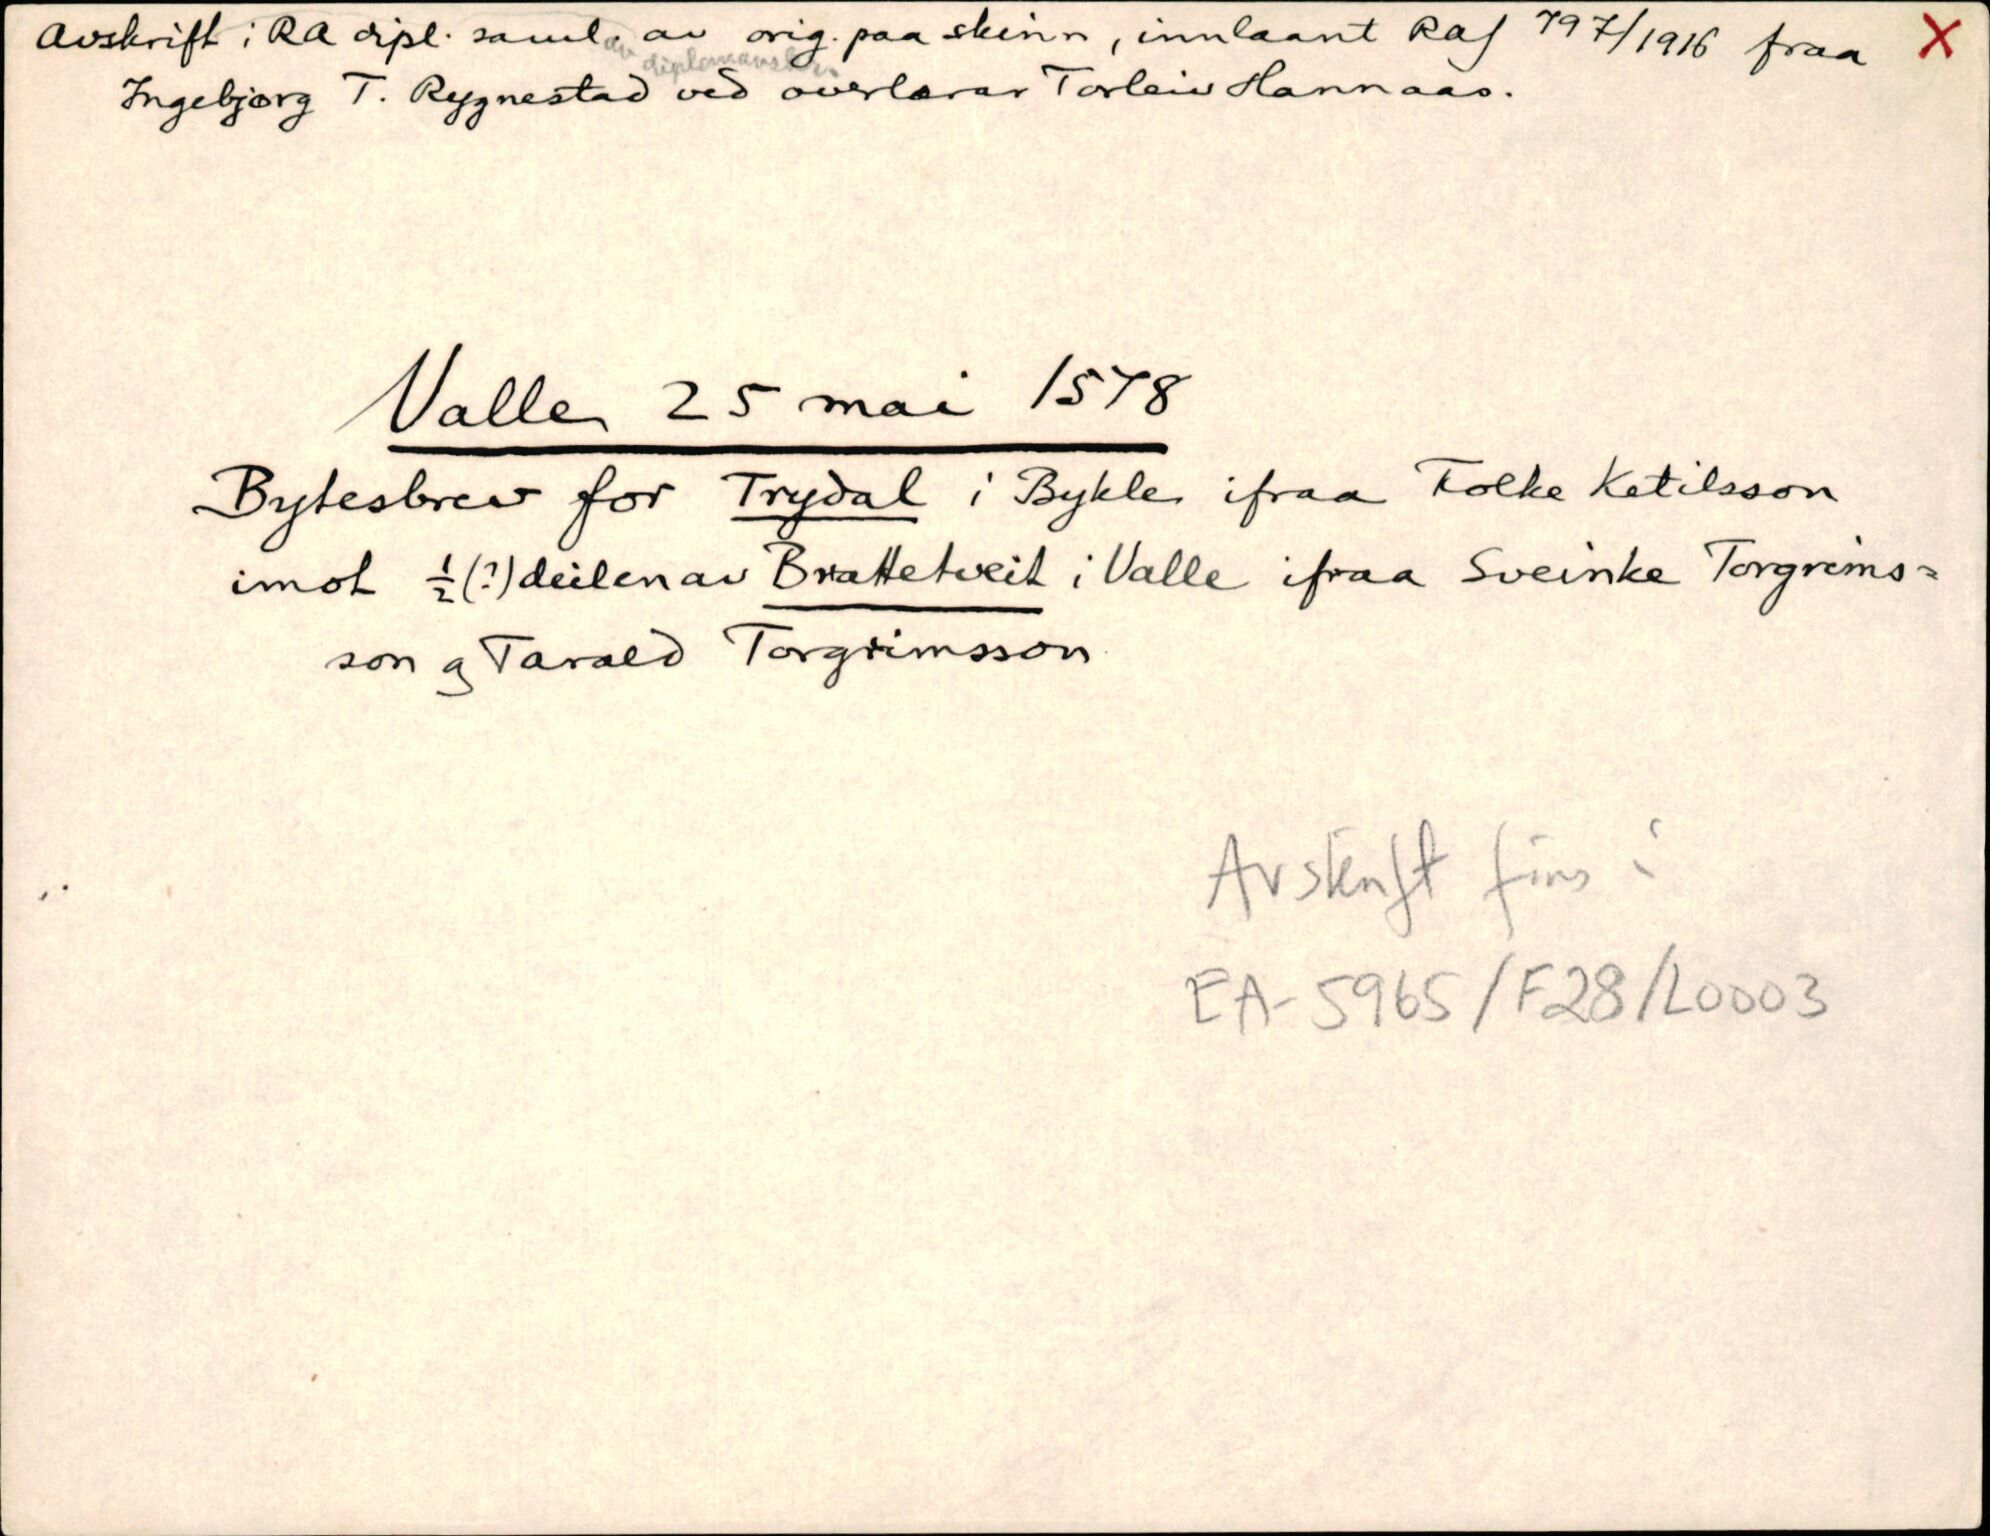 Avskrift i RA dipl. saml. av orig. paa skinn, innlaant RAJ 797/1916 fraa X
av diplomavskr.
Ingebjørg T. Rygnestad ved overlærar Torleiv Hannaas.
Valle 25 mai 1578
Bytesbrev for Trydal i Bykle ifraa Folke Ketilsson
imot ½(?)deilen av Brattetveit i Valle ifraa Sveinke Torgrims=
son og Tarald Torgrimsson
Avskrift fins i
EA-5965/F28/L0003